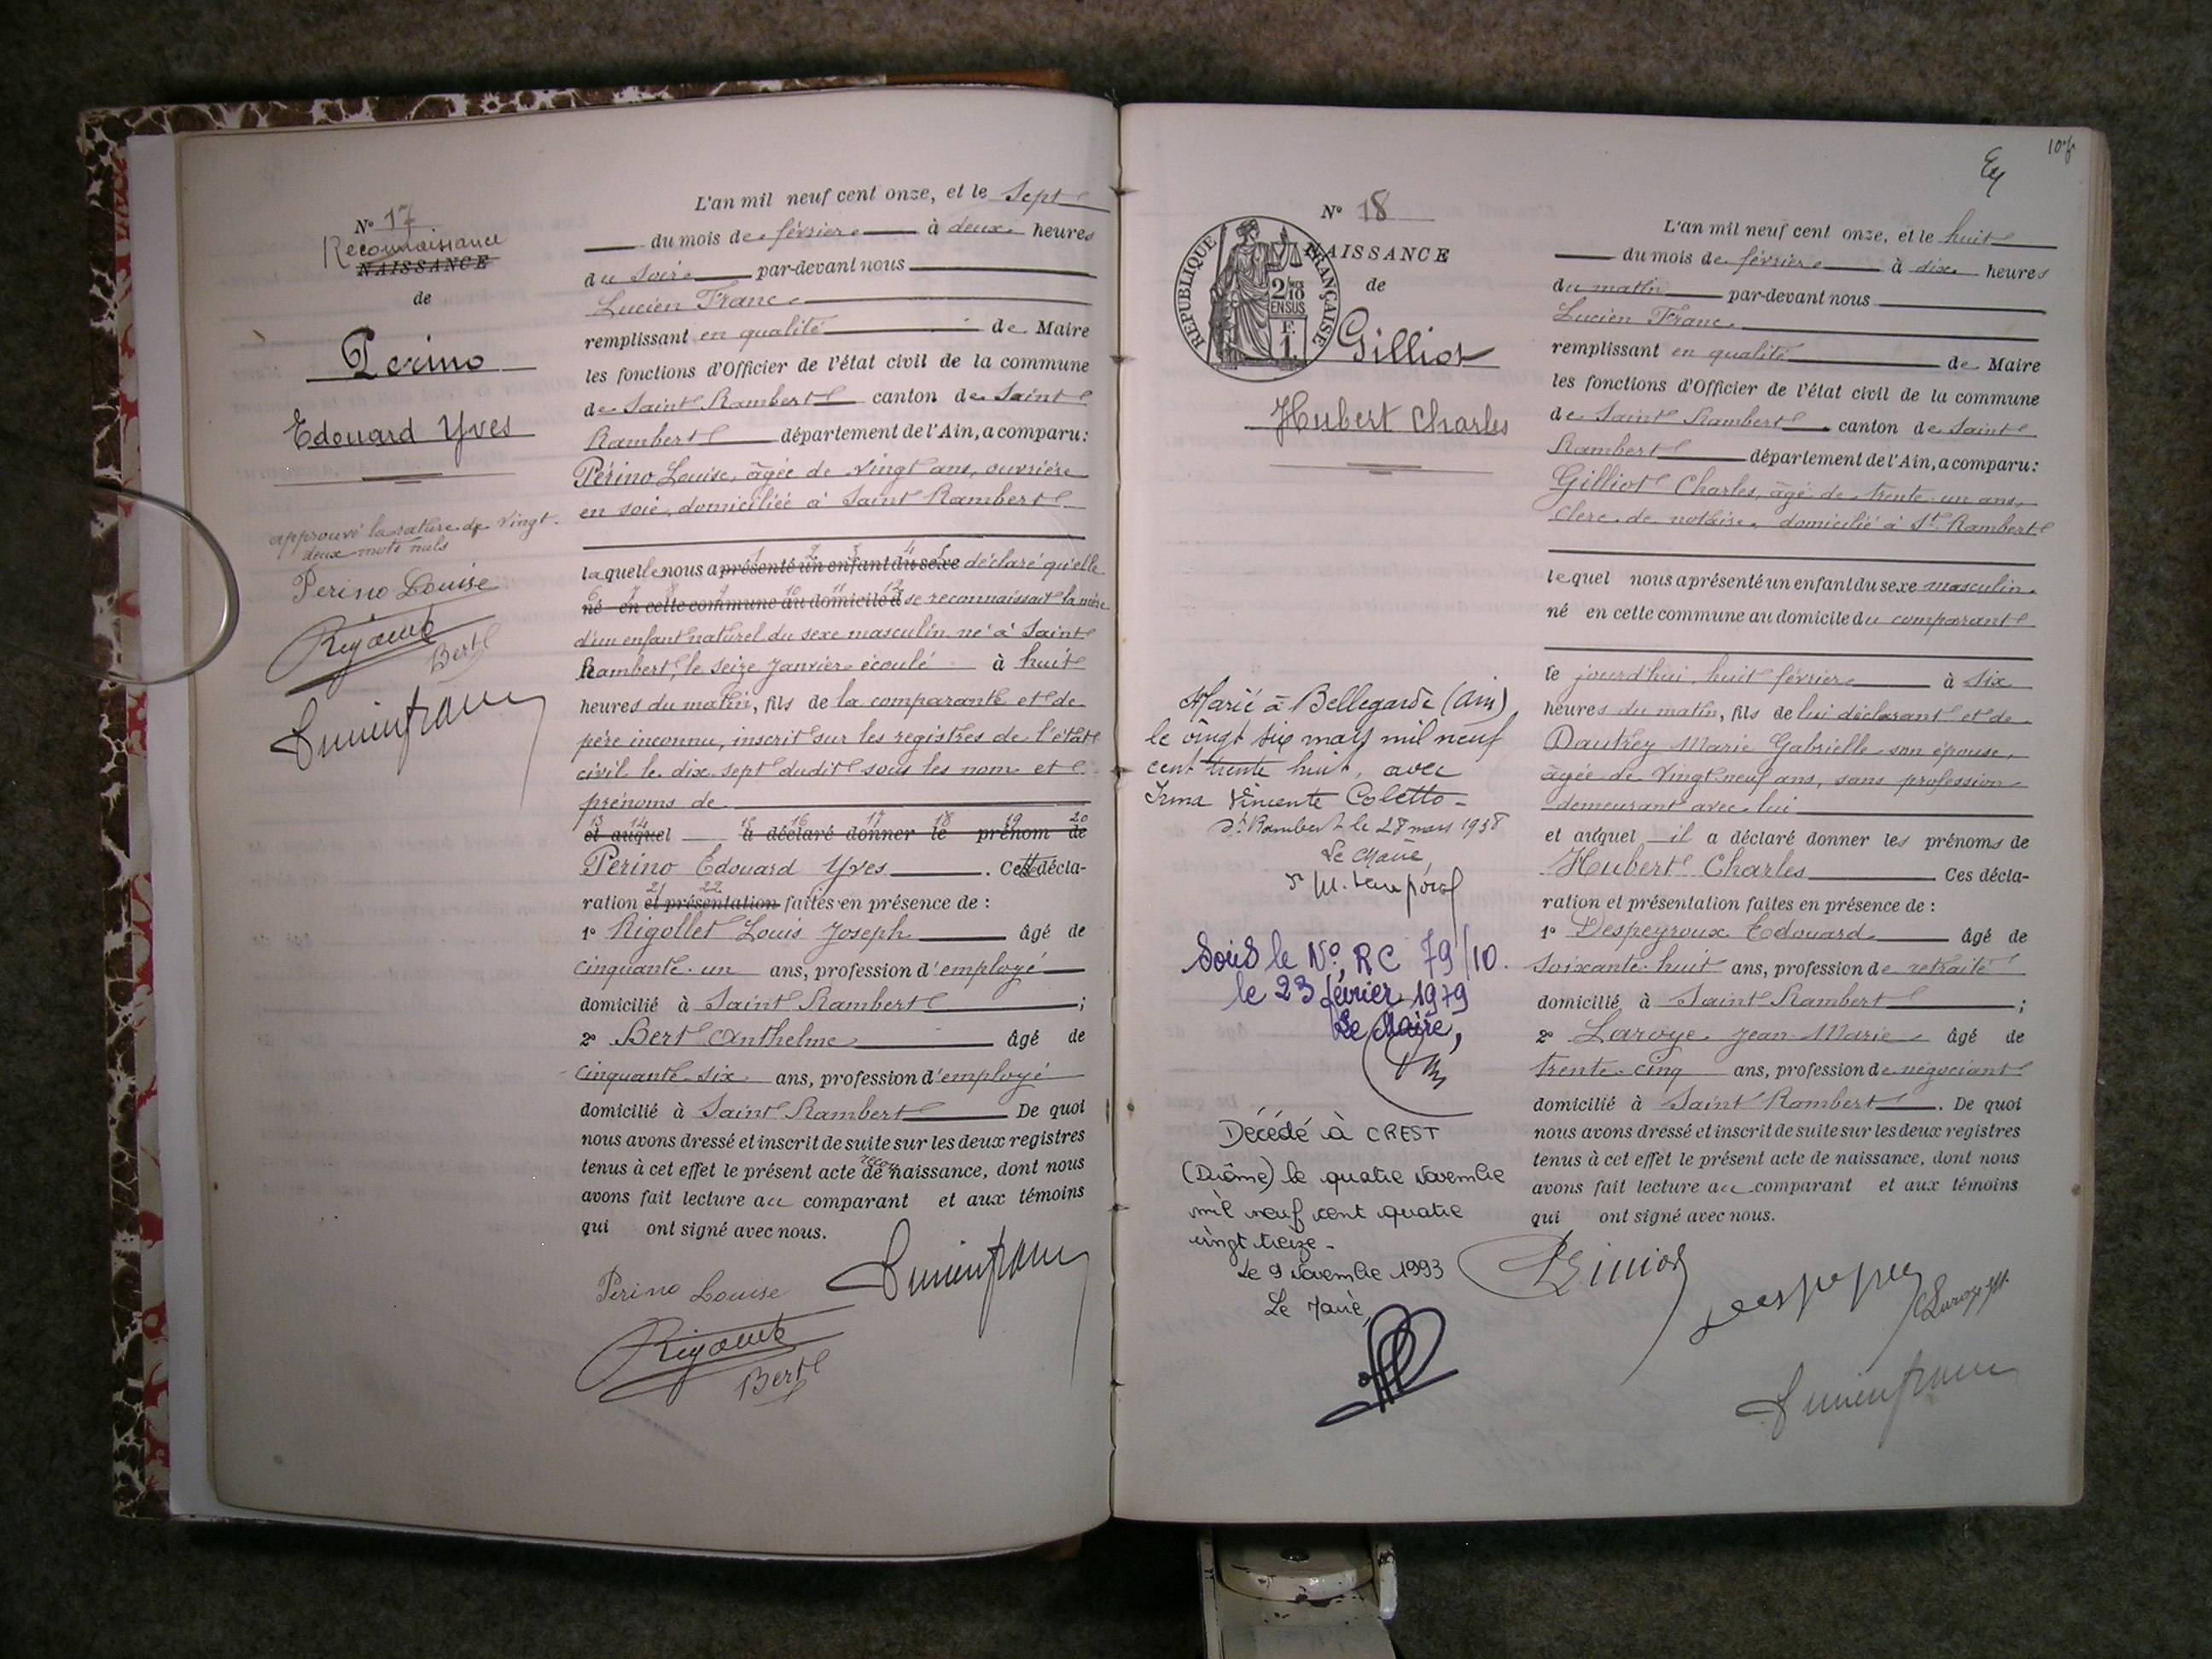 N° 17
Reconnaissance
NAISSANCE
de
Perino
Edouard Yves
approuvé la rature de vingt
deux mots nuls
Perino Louise
Bert
L'an mil neuf cent onze, et le Sept
du mois de février à deux heures
du soir par-devant nous
Lucien Franc
remplissant en qualité de Maire
les fonctions d'Officier de l'état civil de la commune
de Saint Rambert canton de Saint
Rambert département de l'Ain, a comparu :
Périno Louise, âgée de vingt ans, ouvrière
en soie, domiciliée à Saint Rambert
1 2 3 4 5
laquelle nous a présenté un enfant du sexe déclaré qu'elle
6 7 8 9 10 11 12
né en cette commune au domicile d se reconnaissait la mère
d'un enfant naturel du sexe masculin né à Saint
Rambert, le seize janvier écoulé à huit
heures du matin, fils de la comparante et de
père inconnu, inscrit sur les registres de l'état
civil le dix sept dudit sous les nom et
prénoms de
13 14 15 16 17 18 19 20
et auquel a déclaré donner le prénom de
Perino Edouard Yves. Cette décla-
21 22
ration et présentation faites en présence de :
1° Rigollet Louis Joseph âgé de
cinquante-un ans, profession d'employé
domicilié à Saint Rambert ;
2° Bert Anthelme âgé de
cinquante-six ans, profession d'employé
domicilié à Saint Rambert De quoi
nous avons dressé et inscrit de suite sur les deux registres
tenus à cet effet le présent acte de reconnaissance, dont nous
avons fait lecture au comparant et aux témoins
qui ont signé avec nous.
Perino Louise
Bert
10
N° 18
REPUBLIQUE FRANÇAISE
2/10
EN SUS
F.
1.
NAISSANCE
de
Gilliot
Hubert Charles
Marié à Bellegarde (Ain)
le vingt six mars mil neuf
cent trente huit, avec
Irma Vincente Coletto -
St Rambert le 28 mars 1938
Le Maire,
Sous le N° RC 79/10.
le 23 février 1979
Le Maire,
Décédé à CREST
(Drôme) le quatre novembre
mil neuf cent quatre
vingt treize -
Le 9 novembre 1993
Le Maire,
L'an mil neuf cent onze, et le huit
du mois de février à dix heures
du matin par-devant nous
Lucien Franc
remplissant en qualité de Maire
les fonctions d'Officier de l'état civil de la commune
de Saint Rambert canton de Saint
Rambert département de l'Ain, a comparu :
Gilliot Charles, âgé de trente-un ans,
clerc de notaire, domicilié à St Rambert
lequel nous a présenté un enfant du sexe masculin
né en cette commune au domicile du comparant
le jourd'hui, huit février à six
heures du matin, fils de lui déclarant et de
Dautrey Marie Gabrielle son épouse,
âgée de vingt-neuf ans, sans profession
demeurant avec lui
et auquel il a déclaré donner les prénoms de
Hubert Charles Ces décla-
ration et présentation faites en présence de :
1° Despeyroux Edouard âgé de
soixante-huit ans, profession de retraité
domicilié à Saint Rambert ;
2° Laroye Jean-Marie âgé de
trente-cinq ans, profession de négociant
domicilié à Saint Rambert. De quoi
nous avons dressé et inscrit de suite sur les deux registres
tenus à cet effet le présent acte de naissance, dont nous
avons fait lecture au comparant et aux témoins
qui ont signé avec nous.